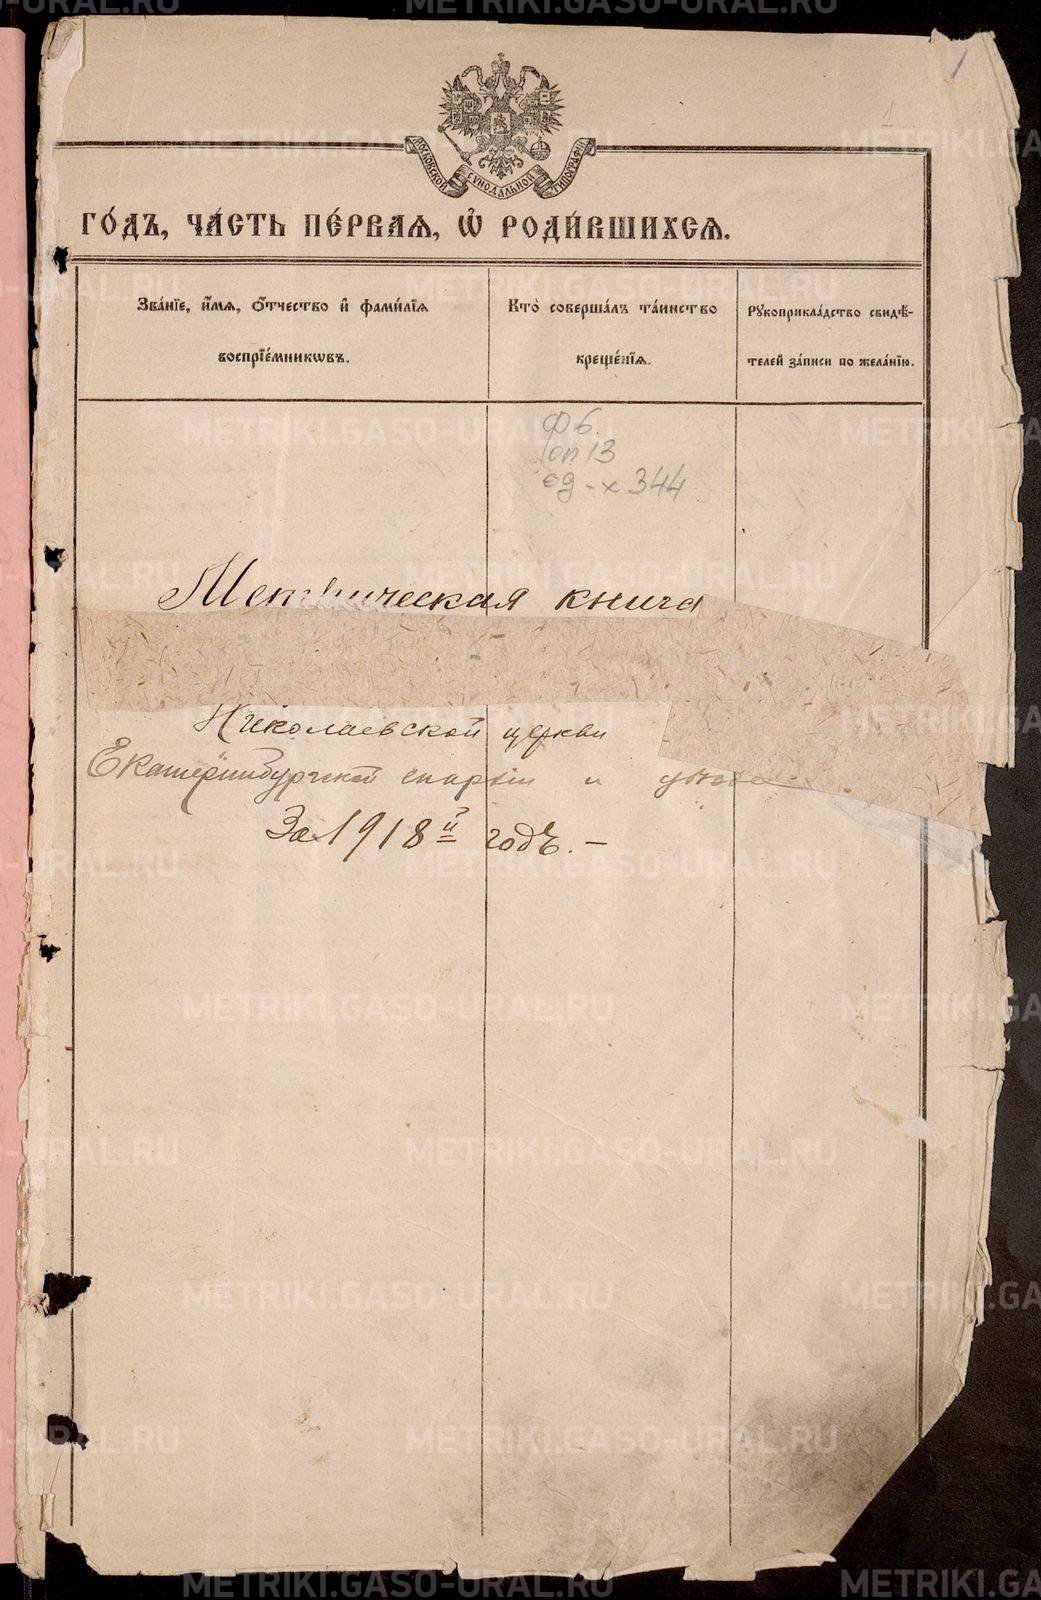 МОСКОВСКОЙ СѴНОДАЛЬНОЙ ТИПОГРАФІИ
1
ГО́ДЪ, ЧА́СТЬ ПЕ́РВАѦ, Ѡ҆ РОДИ́ВШИХСѦ.
Зва́нїе, и҆́мѧ, ѻ҆́тчество и҆ фами́лїѧ
воспрїе́мникѡвъ.
Кто̀ соверша́лъ та́инство
креще́нїѧ.
Рꙋкоприкла́дство свидѣ́-
телей за́писи по жела́нїю.
Ф 6.
оп 13
ед-х 344
Метрическая книга
Николаевской церкви
Екатеринбургской епархіи и уѣзда
За 1918й годъ. –
METRIKI.GASO-URAL.RU